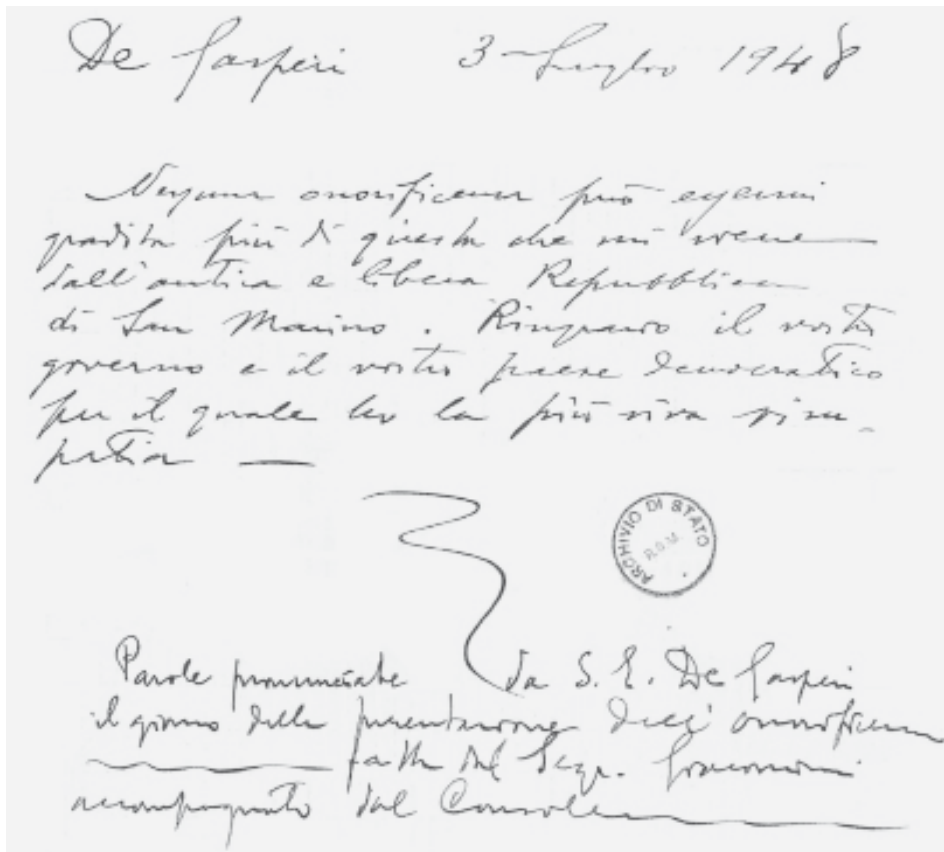 De Gasperi 3-Luglio 1948
Nessuna onorificenza può essermi
gradita più di questa che mi viene
dall'antica e libera Repubblica
di San Marino. Ringrazio il vostro
governo e il vostro paese democratico
per il quale ho la più viva sim-
patia —
ARCHIVIO DI STATO
R.S.M.
Parole pronunciate da S. E. De Gasperi
il giorno della presentazione
fatta dal Segr. Giacomini
accompagnato dal Console